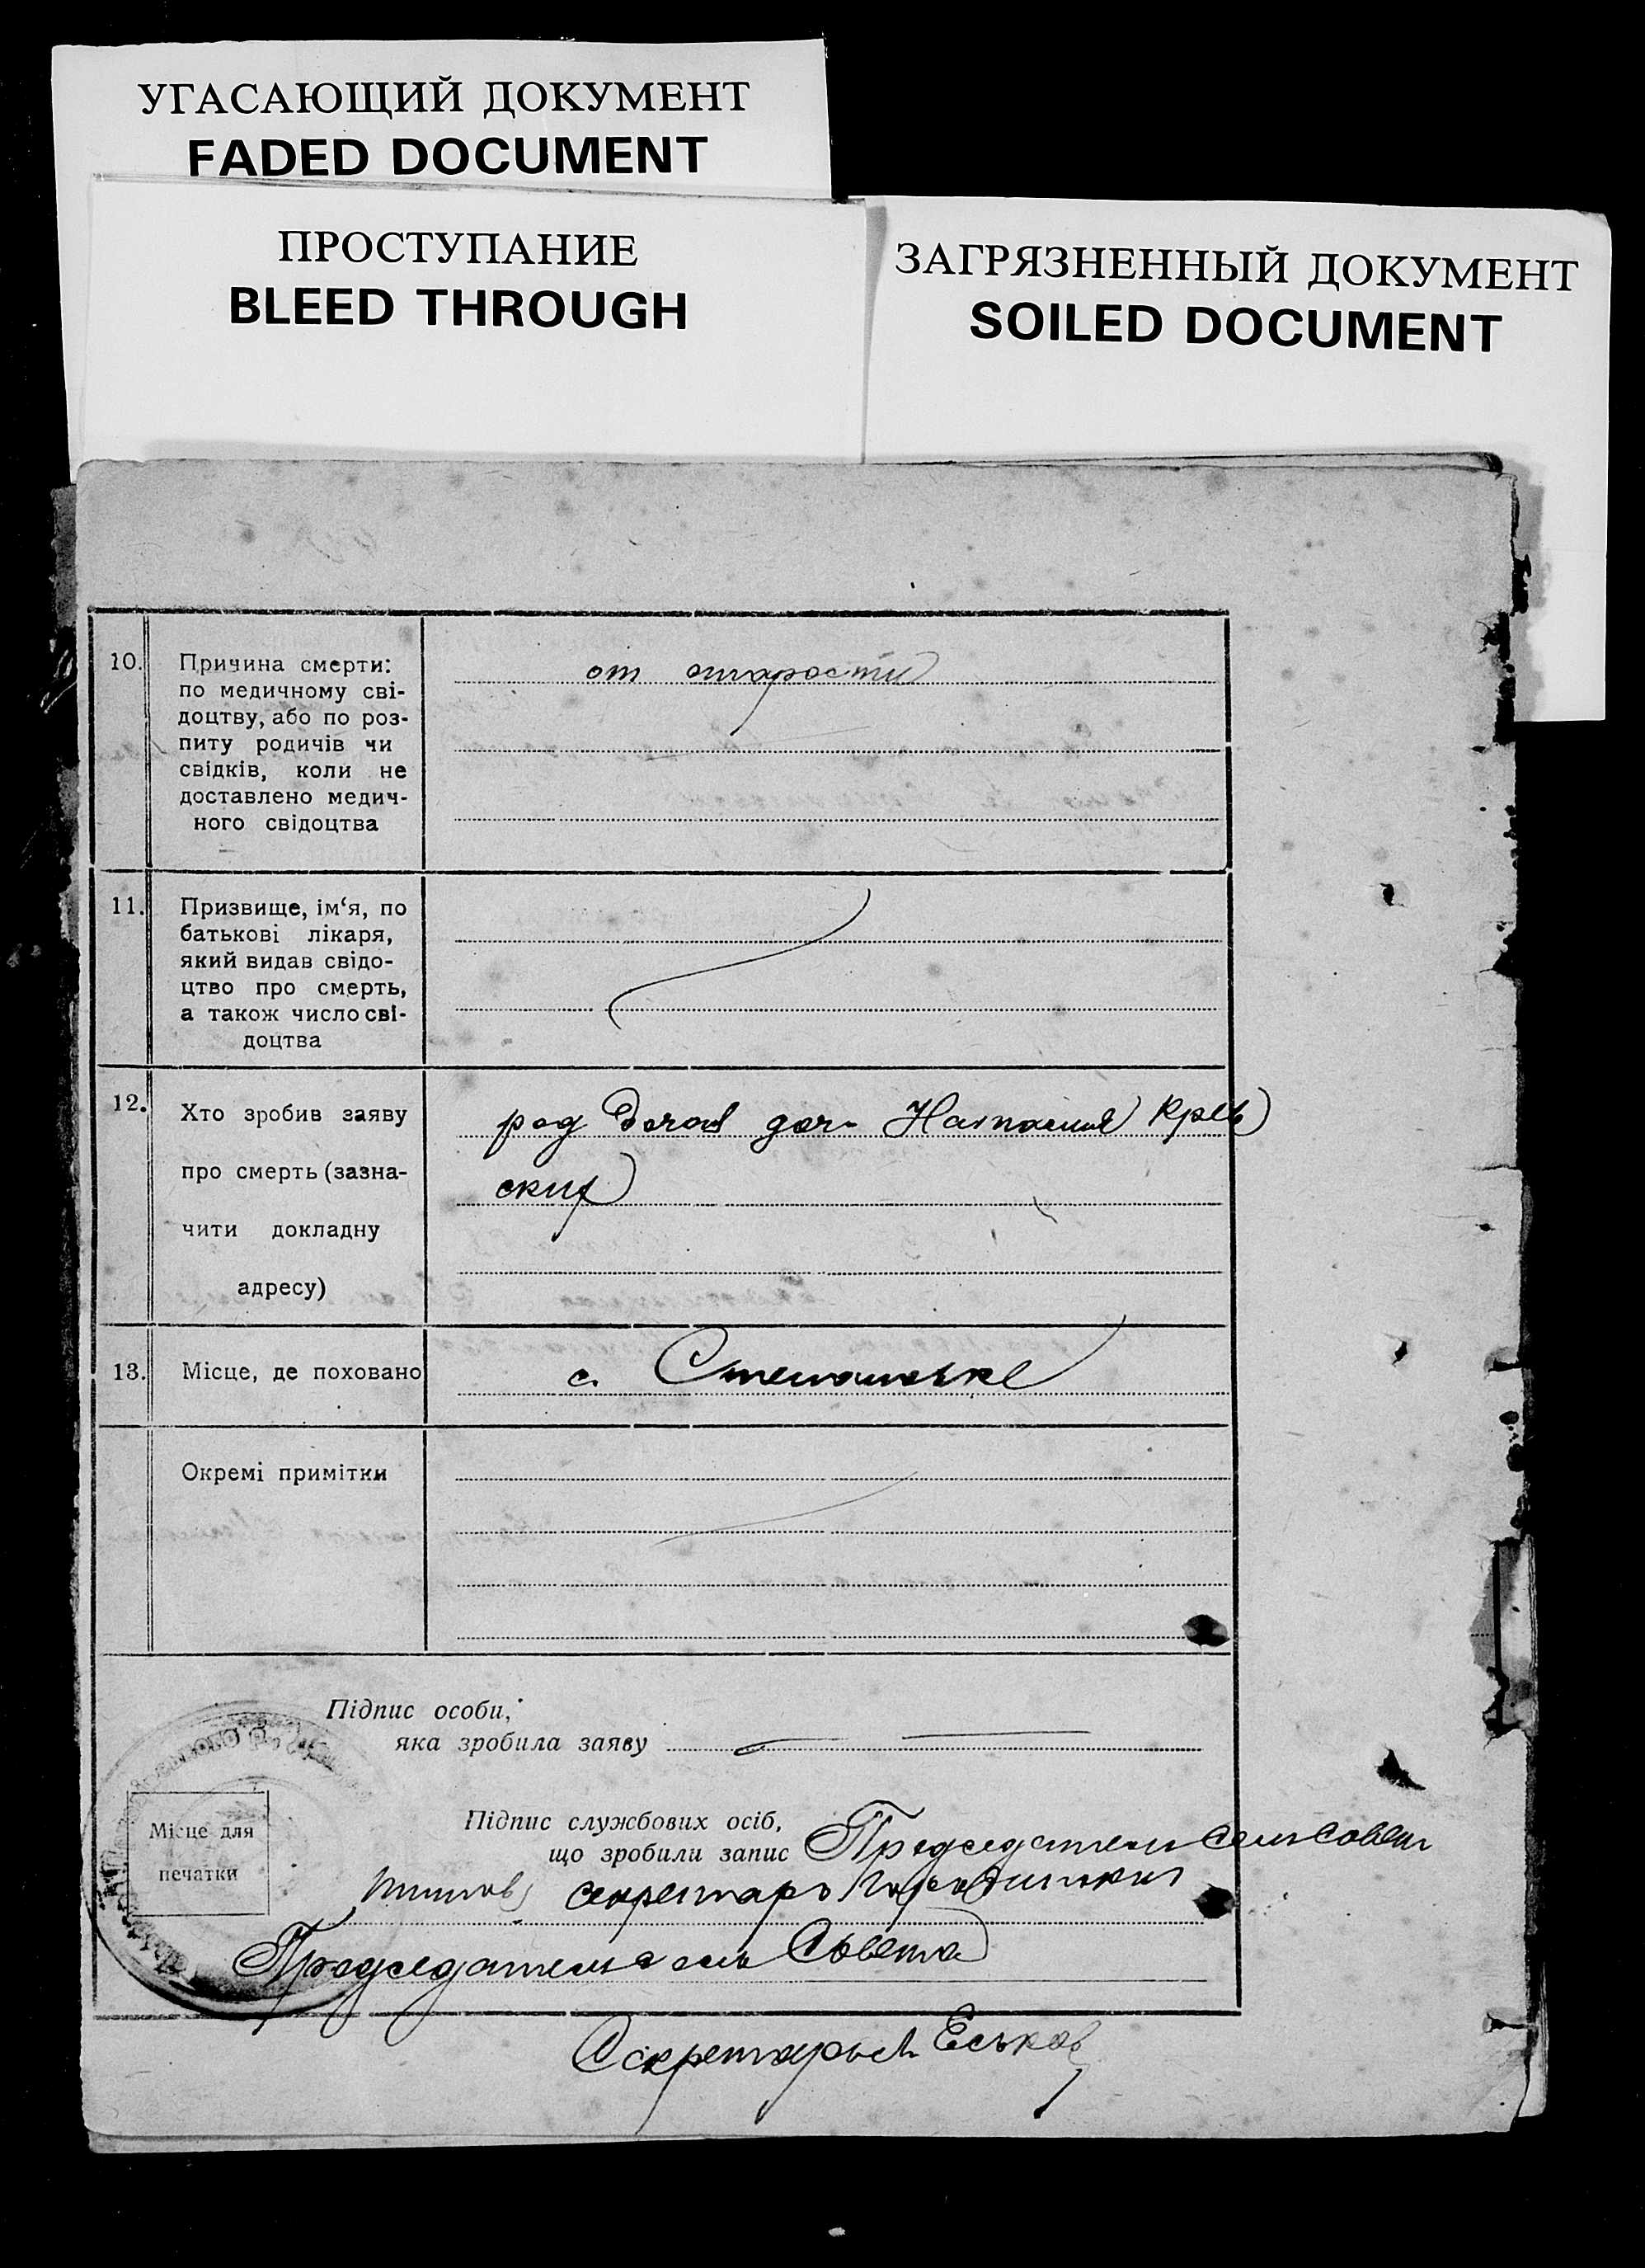 УГАСАЮЩИЙ ДОКУМЕНТ
FADED DOCUMENT
ПРОСТУПАНИЕ
BLEED THROUGH
ЗАГРЯЗНЕННЫЙ ДОКУМЕНТ
SOILED DOCUMENT
10. Причина смерти:
по медичному сві-
доцтву, або по роз-
питу родичів чи
свідків, коли не
доставлено медич-
ного свідоцтва
от старости
11. Призвище, ім‘я, по
батькові лікаря,
який видав свідо-
цтво про смерть,
а також число сві-
доцтва
12. Хто зробив заяву
про смерть (зазна-
чити докладну
адресу)
род
13. Місце, де поховано
с.
Окремі примітки
Підпис особи,
яка зробила заяву
Місце для
печатки
Підпис службових осіб,
що зробили запис Председатель
секретарь
Председатель сель Совета
Секретарь Еськов